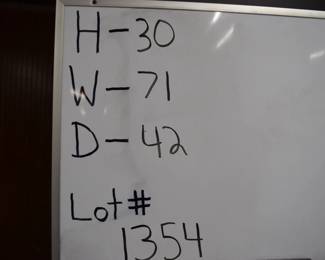 H-30
W-71
D-42
Lot#
1354